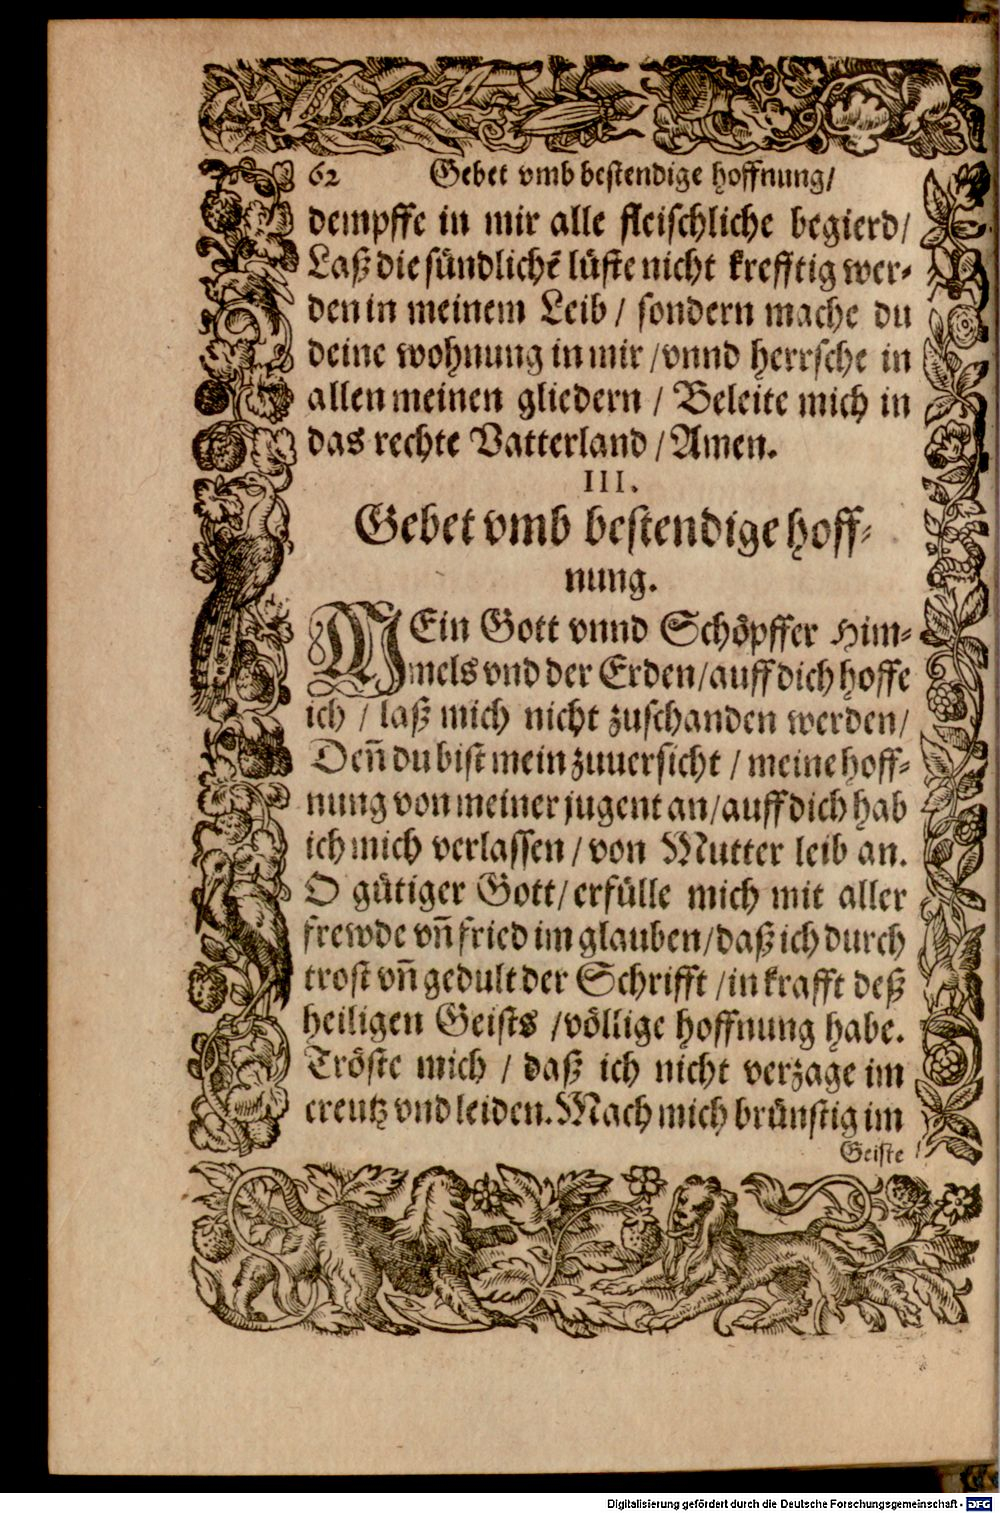 62 Gebet vmb bestendige hoffnung/
dempffe in mir alle fleischliche begierd/
Laß die sündlichē lüste nicht krefftig wer-
den in meinem Leib / sondern mache du
deine wohnung in mir / vnnd herrsche in
allen meinen gliedern / Beleite mich in
das rechte Vatterland / Amen.
III.
Gebet vmb bestendige hoff-
nung.
MEin Gott vnnd Schöpffer Him-
mels vnd der Erden/auff dich hoffe
ich / laß mich nicht zuschanden werden/
Deñ du bist mein zuuersicht / meine hoff-
nung von meiner jugent an/auff dich hab
ich mich verlassen / von Mutter leib an.
O gütiger Gott/ erfülle mich mit aller
frewde vñ fried im glauben/daß ich durch
trost vñ gedult der Schrifft /in krafft deß
heiligen Geists /völlige hoffnung habe.
Tröste mich / daß ich nicht verzage im
creutz vnd leiden. Mach mich brünstig im
Geiste
Digitalisierung gefördert durch die Deutsche Forschungsgemeinschaft - DFG